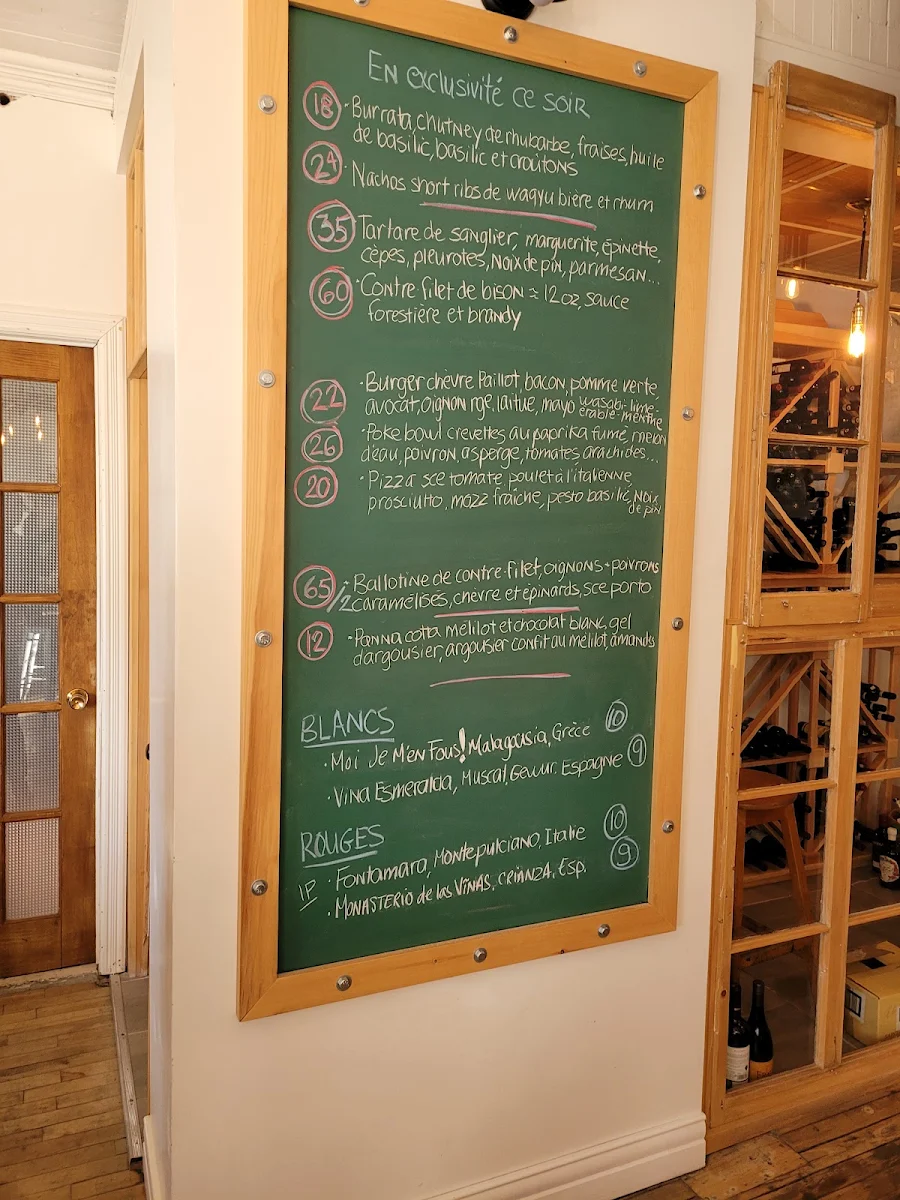 En exclusivité ce soir
18 · Burrata, chutney de rhubarbe, fraises, huile
de basilic, basilic et croûtons
24 · Nachos short ribs de wagyu bière et rhum
35 · Tartare de sanglier, marguerite, épinette,
cèpes, pleurotes, noix de pin, parmesan...
60 · Contre filet de bison ≈ 12 oz, sauce
forestière et brandy
22 · Burger chèvre Paillot, bacon, pomme verte,
avocat, oignon rge, laitue, mayo wasabi-lime-
érable-menthe
26 · Poke bowl crevettes au paprika fumé, melon
d'eau, poivron, asperge, tomates arachides...
20 · Pizza sce tomate poulet à l'italienne,
prosciutto, mozz fraîche, pesto basilic, noix
de pin
65/2 · Ballotine de contre-filet, oignons + poivrons
caramélisés, chèvre et épinards, sce porto
12 · Panna cotta mélilot et chocolat blanc, gel
d'argousier, argousier confit au mélilot, amands
BLANCS
· Moi Je M'en Fous! Malagousia, Grèce 10
· Vina Esmeralda, Muscat, Gewur. Espagne 9
ROUGES
· Fontamara, Montepulciano, Italie 10
IP · Monasterio de las Vinas, Crianza, Esp. 9